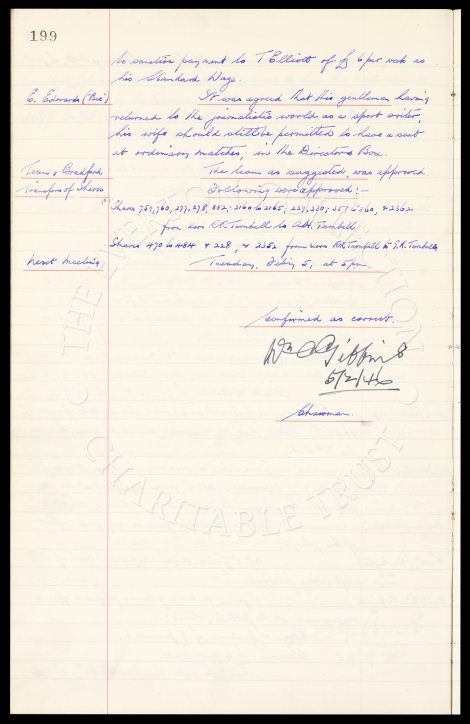 199
to sanction payment to T Elliott of £6 per week as
his Standard Wage.
E. Edwards ("Bee") It was agreed that this gentleman having
returned to the journalistic world as a sport writer,
his wife should still be permitted to have a seat
at ordinary matches, in the Directors Box.
Team v Bradford The team as suggested, was approved
Transfers of Shares Following were approved:-
Shares 759, 760, 277, 278, 2160 to 2165, 229, 230, & 2362
from Exors R.H. Turnbull to A.H. Turnbull
Shares 470 to 484 & 228, & 2352 from Exors R.H. Turnbull to G.R. Turnbull
Next Meeting Tuesday, Feb'y 5, at 5pm.
Confirmed as correct.
Wm C Gibbins
5/2/46
Chairman.
THE EVERTON COLLECTION
CHARITABLE TRUST